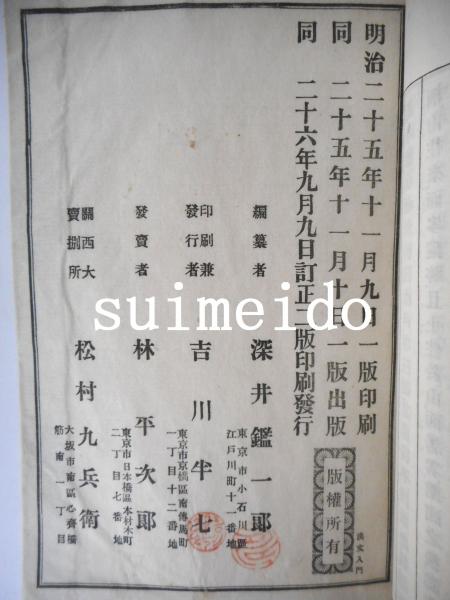 明治二十五年十一月九日一版印刷
同 二十五年十一月十日一版出版
同 二十六年九月九日訂正二版印刷發行
版權所有
漢文入門
編纂者 深井鑑一郎
東京市小石川區
江戸川町十一番地
印刷兼
發行者 吉川半七
東京市京橋區南傳馬町
一丁目十二番地
發賣者 林平次郎
東京市日本橋區本材木町
二丁目七番地
關西大
賣捌所 松村九兵衛
大坂市南區心齋橋
筋南一丁目
suimeido